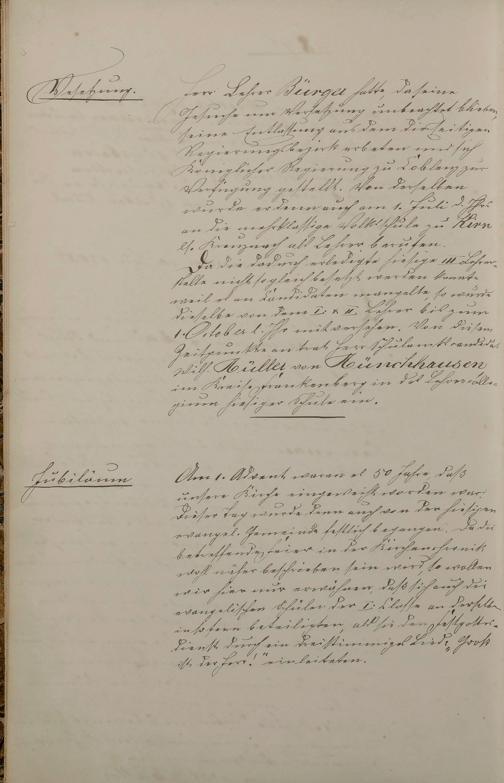 Versetzung.
Herr Lehrer Bürger hatte, da seine
Gesuche um Versetzung unbeachtet blieben,
seine Entlassung aus dem diesseitigen
Regierungsbezirk erbeten und sich
Königlicher Regierung zu Coblenz zur
Verfügung gestellt. Von derselben
wurde er denn auch am 1. Juli d. Jhrs
an die mehrklassige Volksschule zu Kirn
Kr. Kreuznach als Lehrer berufen.
Da die dadurch erledigte hiesige III. Lehrer-
stelle nicht sogleich besetzt werden konnte
weil es an Candidaten mangelte, so wurde
dieselbe von dem I. & II. Lehrer bis zum
1. October l. Jhr mitversehen. Von diesem
Zeitpunkte an trat Herr Schulamtscandidat
Wilh. Müller von Münchhausen
im Kreise Frankenberg in das Lehrercolle-
gium hiesiger Schule ein.
Jubiläum
Am 1. Advent waren es 50 Jahre, daß
unsere Kirche eingeweiht worden war.
Dieser Tag wurde denn auch von der hiesigen
evangel. Gemeinde festlich begangen. Da die
betreffende Feier in der Kirchenchronik
wohl näher beschrieben sein wird, so wollen
wir hier nur erwähnen, daß sich auch die
evangelischen Schüler der I. Classe an derselben
insofern beteiligten, als sie den Festgottes-
dienst durch ein dreistimmiges Lied: „Groß
ist der Herr!" einleiteten.